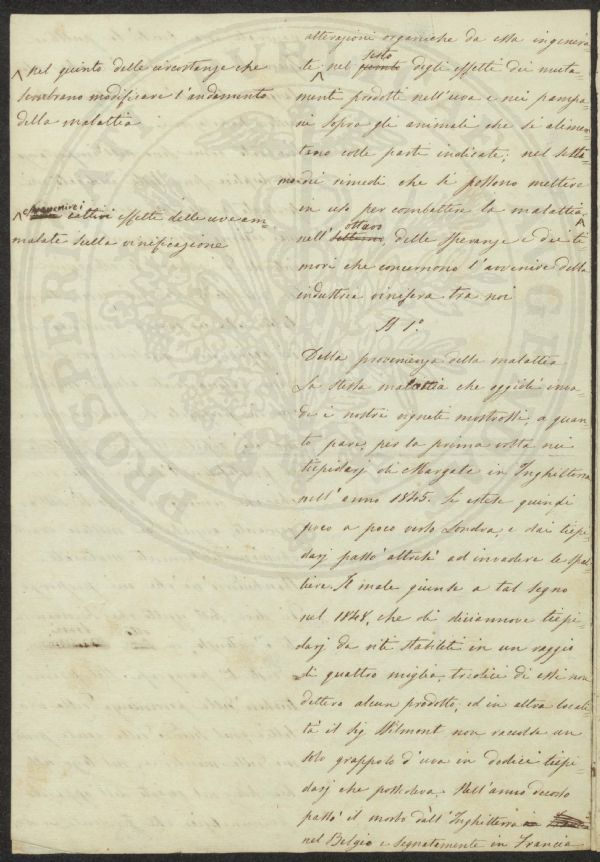 nel quinto delle circostanze che
sembrano modificare l'andamento
della malattia
prevenire i
cattivi effetti delle uve am-
malate sulla vinificazione
alterazioni organiche da essa ingenera-
te nel sesto quinto degli effetti dei muta-
menti prodotti nell'uva e nei pampa-
ni sopra gli animali che si alimen-
tano colle parti indicate; nel setti-
mo dei rimedi che si possono mettere
in uso per combattere la malattia
nell' ottavo settimo delle speranze e dei ti-
mori che concernono l'avvenire della
industria vinifera tra noi
§ 1.°
Della provenienza della malattia
La stessa malattia che oggidì inva-
de i nostri vigneti mostrossi, a quan-
to pare, per la prima volta nei
tiepidarj di Margate in Inghilterra
nell'anno 1845. Si estese quindi
poco a poco verso Londra, e dai tiepi-
darj passò altresì ad invadere le spal-
liere. Il male giunse a tal segno
nel 1848, che di diciannove tiepi-
darj da viti stabiliti in un raggio
di quattro miglia, tredici di essi non
dettero alcun prodotto, ed in altra locali-
tà il Sig Wilmont non raccolse un
solo grappolo d'uva in dodici tiepi-
darj che possedeva. Nell'anno decorso
passò il morbo dall'Inghilterra in
nel Belgio e segnatamente in Francia
PROSPERITATI PUBLICAE AUGENDAE